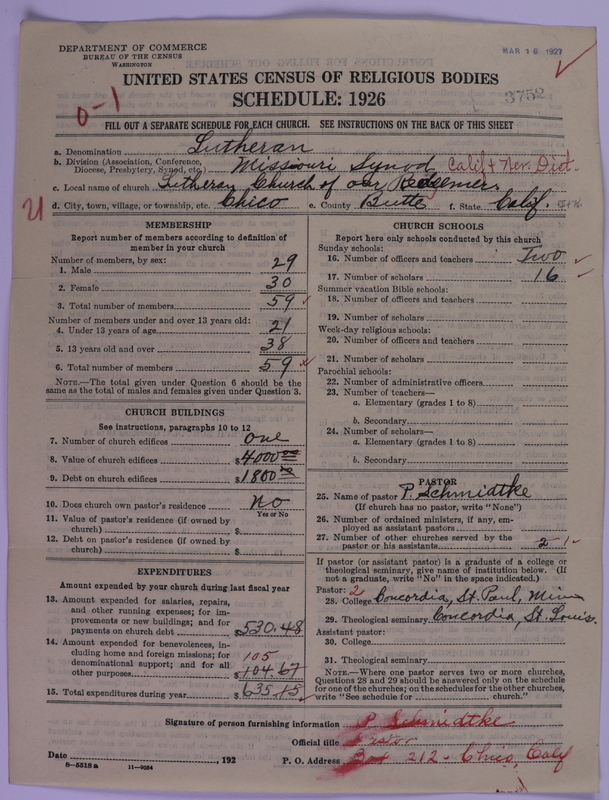 DEPARTMENT OF COMMERCE
BUREAU OF THE CENSUS
WASHINGTON
MAR 16 1927
UNITED STATES CENSUS OF RELIGIOUS BODIES
SCHEDULE: 1926
3752
0-1
FILL OUT A SEPARATE SCHEDULE FOR EACH CHURCH. SEE INSTRUCTIONS ON THE BACK OF THIS SHEET
a. Denomination Lutheran
b. Division (Association, Conference, Diocese, Presbytery, Synod, etc.) Missouri Synod Calif + Nev. Dist.
c. Local name of church Lutheran Church of our Redeemer.
d. City, town, village, or township, etc. Chico e. County Butte f. State Calif.
21
MEMBERSHIP
Report number of members according to definition of
member in your church
Number of members, by sex:
1. Male 29
2. Female 30
3. Total number of members 59
Number of members under and over 13 years old:
4. Under 13 years of age 21
5. 13 years old and over 38
6. Total number of members 59
NOTE.—The total given under Question 6 should be the
same as the total of males and females given under Question 3.
CHURCH BUILDINGS
See instructions, paragraphs 10 to 12
7. Number of church edifices one
8. Value of church edifices $4000 00
9. Debt on church edifices $1800 00
10. Does church own pastor's residence No
Yes or No
11. Value of pastor's residence (if owned by
church) $
12. Debt on pastor's residence (if owned by
church) $
EXPENDITURES
Amount expended by your church during last fiscal year
13. Amount expended for salaries, repairs,
and other running expenses; for im-
provements or new buildings; and for
payments on church debt $530.48
14. Amount expended for benevolences, in-
cluding home and foreign missions; for
denominational support; and for all
other purposes $104.67
105
15. Total expenditures during year $635.15
CHURCH SCHOOLS
Report here only schools conducted by this church
Sunday schools:
16. Number of officers and teachers Two
17. Number of scholars 16
Summer vacation Bible schools:
18. Number of officers and teachers
19. Number of scholars
Week-day religious schools:
20. Number of officers and teachers
21. Number of scholars
Parochial schools:
22. Number of administrative officers
23. Number of teachers—
a. Elementary (grades 1 to 8)
b. Secondary
24. Number of scholars—
a. Elementary (grades 1 to 8)
b. Secondary
PASTOR
25. Name of pastor P. Schmidtke
(If church has no pastor, write "None")
26. Number of ordained ministers, if any, em-
ployed as assistant pastors
27. Number of other churches served by the
pastor or his assistants 2
If pastor (or assistant pastor) is a graduate of a college or
theological seminary, give name of institution below. (If
not a graduate, write "No" in the space indicated.)
Pastor: 2
28. College Concordia, St. Paul, Minn
29. Theological seminary Concordia St. Louis.
Assistant pastor:
30. College
31. Theological seminary
NOTE.—Where one pastor serves two or more churches,
Questions 28 and 29 should be answered only on the schedule
for one of the churches; on the schedules for the other churches,
write "See schedule for church."
Signature of person furnishing information P. Schmidtke
Official title Pastor
Date , 192 P. O. Address Box 212 - Chico, Calif
8-5518a 11-9054